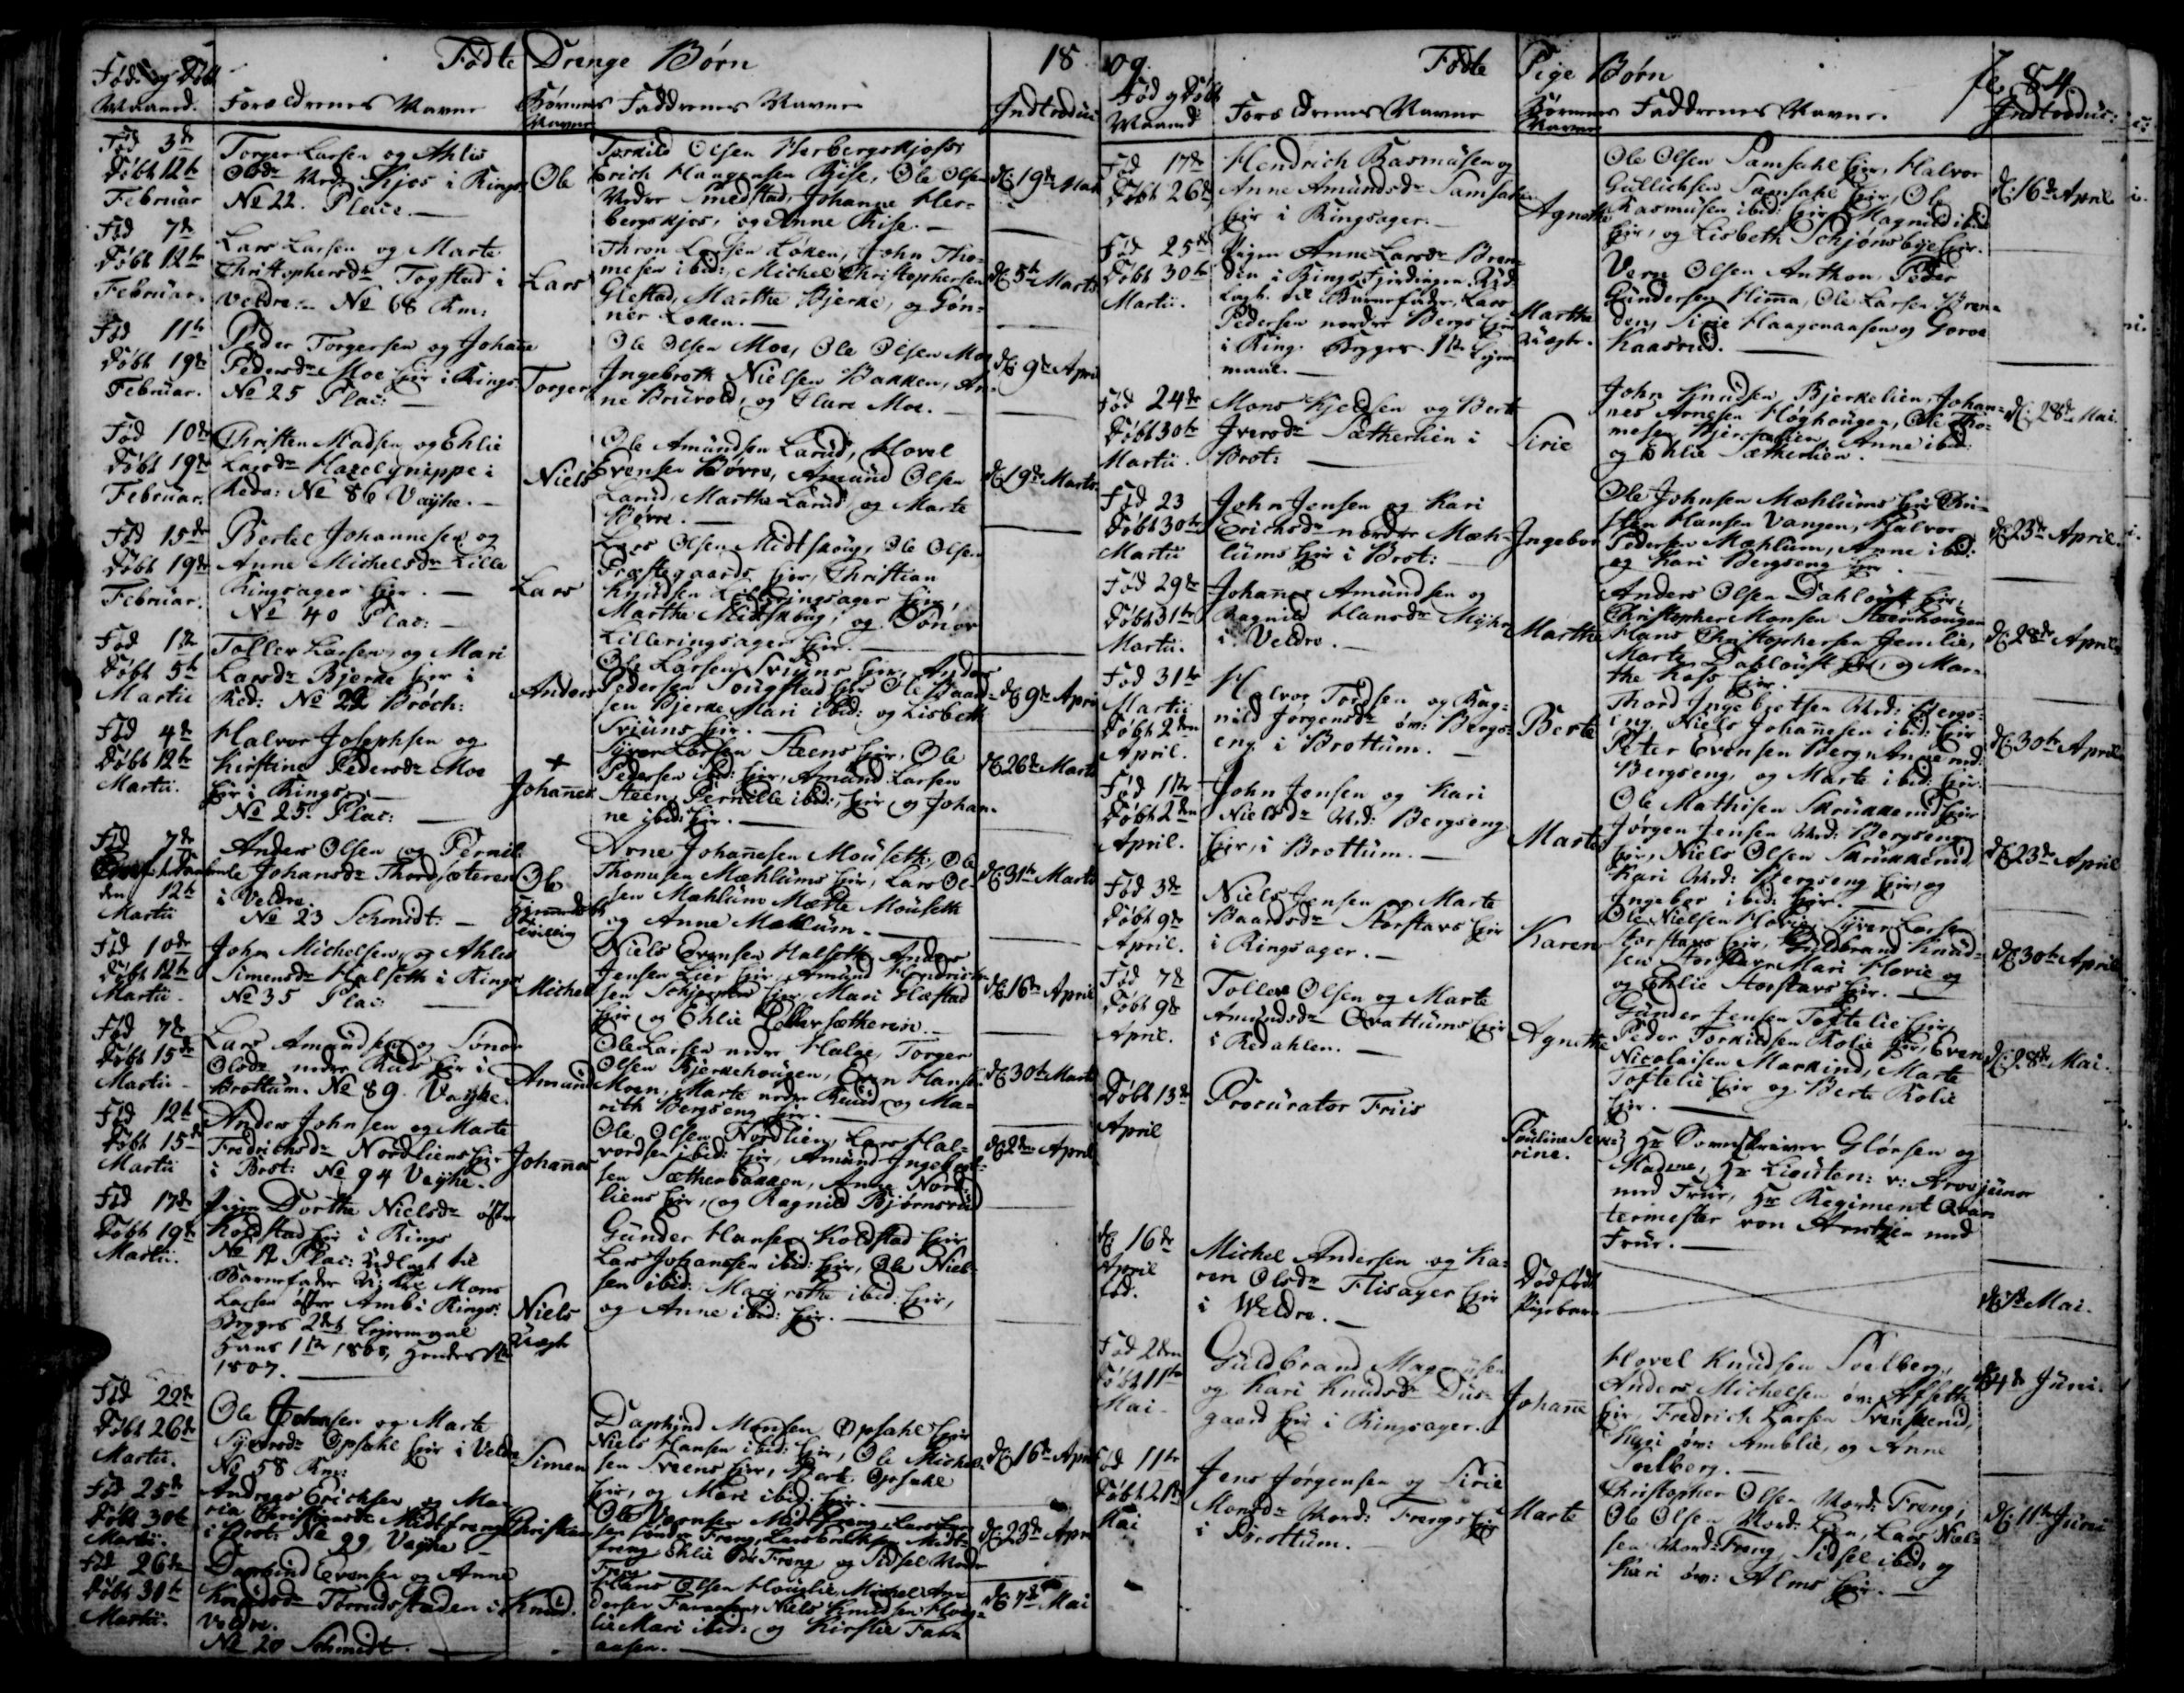 Fødte Drenge Børn 18
Fød og Døbt
Maaned. Forældrenes Navne Børnenes Navne Faddrenes Navne Introduc:
Fød 3de
Døbt 12te
Februar
Torger Larsen og Ahlis
Olsdr Nedr Kjos i Rings
No 22. Placi.
Ole
Torkild Olsen Herbergskjosr
Erich Haagensen Rise, Ole Olsen
Nedre Smedstad, Johanne Her-
bergskjos, og Anne Rise.
d: 19de Mart
Fød 7de
Døbt 12te
Februar.
Lars Larsen og Marte
Christophersdr Togstad i
Veldre. No 68 Rm:
Lars
Thron Larsen Løken, John Tho-
mesen ibid:, Michel Christophersen
Glestad, Marthe Bjerke, og Gøn-
ner Løken.
d: 5te Marts
Fød 11te
Døbt 19de
Februar.
Peder Torgersen og Johane
Pedersdr Moe Eje i Rings.
No 25 Plac:
Torger
Ole Olsen Moe, Ole Olsen Moe
Ingebreth Nielsen Bakken, An-
ne Brüvold, og Clare Moe.
d: 9de April
Fød 10de
Døbt 19de
Februar.
Christen Madsen og Ehlie
Larsdr Haselgnippe i
Reda: No 86 Vaÿhe.
Niels
Ole Amündsen Larüd, Hovel
Evensen Børre, Amünd Olsen
Larüd, Marthe Larüd og Marte
Børre.
d: 19de Marts
Fød 15de
Døbt 19de
Februar.
Bertel Johannesen og
Anne Michelsdr Lille
Ringsager Eje.
No 40 Plac:
Lars
Lars Olsen Midtskoüg, Ole Olsen
Præstegaards Eje, Christian
Knudsen Lilleringsager Eje,
Marthe Midtskoug, og Sønov
Lilleringsager Eje.
Fød 1te
Døbt 5te
Martii
Tollev Larsen og Mari
Larsdr Bjerke Eje i
Red: No 22 Brøch:
Anders
Ole Larsen Sviüns Eje, Anders
Pedersen Sougstad Eje Ole Baard-
sen Bjerke Mari ibid: og Lisbeth
Sviüns Eje.
d: 9de April
Fød 4de
Døbt 12te
Martii.
Halvor Josephsen og
Kirstine Pedersdr Moe
Eje i Rings.
No 25 Plac:
+
Johanes
Syver Larsen Steens Eje, Ole
Pedersen ibid: Eje, Amünd Larsen
Steen, Pernille ibid: Eje og Johan-
ne ibid: Eje.
d: 26de Marts
Fød 7de
den 12te
Martii
Anders Olsen og Pernil-
le Johansdr Thordsæteren
i Veldre.
No 23 Schmidt:
Ole
Arne Johanesen Moüseth, Ole
Thomesen Mæhlüms Eje, Lars Ol-
sen Mæhlüm Marte Moüseth
og Anne Mæhlüm.
d: 31te Marts
Fød 10de
Døbt 12te
Martii.
John Michelsen og Ahlis
Simensdr Halseth i Rings
No 35 Plac
Michel
Niels Evensen Halseth Anders
Jensen Lier Eje, Amünd Hendrich-
sen Eje, Mari Glæstad
Eje og Ehlie sætheren.
d: 16de April
Fød 7de
Døbt 15de
Martii
Lars Amundsen og Sønov
Olsdr nedre Rüd Eje i
Brøttüm. No 89. Vaÿhe.
Amünd
Ole Larsen nedre Halge, Torger
Olsen Bjerkehoügen, Even Hans-
Moen, Marte nedre Rüüd og Ma-
rith Bergseng Eje.
d: 30te Marts
Fød 12te
Døbt 15de
Martii
Anders Johnsen og Marte
Fredrichsdr Nordliens Eje
i Brøt: No 94 Vaÿhe.
Johanes
Ole Olsen Nordlien, Lars Hal-
vordsen ibid: Eje, Amünd Ingebret-
sen Sætherbakken, Anne Nord-
liens Eje, og Ragnild Bjørnsrüd
d: 2den April
Fød 17de
Døbt 19de
Martii.
Pigen Dorthe Nielsdr øfre
Koldstad Eje i Rings
No 12 Plac: Udlagt til
Barnefader U: K: Mons
Larsen øfre Amb i Rings:
Begges 2det Lejermaal
Hans 1te 1808, Hendes 1te
1807.
Niels
Uægte
Günder Hansen Koldstad Eje
Lars Johansen ibid: Eje, Ole Niel-
sen ibid: Margrethe ibid: Eje,
og Anne ibid: Eje.
Fød 22de
Døbt 26de
Martii.
Ole Johnsen og Marte
Syversdr Opsahl Eje i Veldre
No 58 Rm:
Simen
Daphind Monsen Opsahl Eje
Niels Hansen ibid: Eje, Ole Michel-
sen Sveens Eje, Marte Opsahl
Eje, og Mari ibid: Eje.
d: 16de April
Fød 25de
Døbt 30te
Martii.
Andreas Erichsen og Ma-
ria Christiansdr Midtfreng
i Brøt: No 99 Vaÿhe
Christian
Ole Midtfreng Lars
sen søndre Freng, Lars Erichsen Midt-
freng Ehlie Freng og Sidsel Nedre
Freng
d: 23de April
Fød 26de
Døbt 30te
Martii.
Daphind Evensen og Anne
Knüdsdr Tørrüdstaden i
Veldre.
No 20 Schmidt.
Knüd.
Hans Olsen Hoüglie, Michel An-
dersen Faraasen, Niels Knudsen Houg-
lie Mari ibid: og Kirstie Far-
aasen.
d: 7de Mai
09. Fødte Pige Børn 84
Fød og Døbt
Maaned Forældrenes Navne Børnenes Navne Faddrenes Navne. Introduc:
Fød 17de
Døbt 26de
Hendrich Rasmüsen og
Anne Amündsdr Samsahl
Eje i Ringsager.
Agnethe
Ole Olsen Samsahl Eje, Halvor
Gullichsen Samsahl Eje, Ole
Rasmüsen ibid: Eje, Magnild ibid
Eje, og Lisbeth Schjønsbÿe Eje.
d: 16de April
Fød 25de
Døbt 30te
Martii.
Pigen Anne Larsdr Bren-
den i Rings: Fjerdingen Ud-
lagt til Barnefader Lars
Pedersen nordre Bergs Eje
i Ring. Begges 1te Lejer-
maal.
Marthe
Uægte.
Vern Olsen Anthon, Peder
Gündersen Hima, Ole Larsen Bren-
den, Sirie Haagenaasen og Goroe
Kaasrüd.
Fød 24de
Døbt 30te
Martii.
Mons Kjeldsen og Berte
Iversdr Sætherlien i
Brøt:
Sirie
John Knüdsen Bjerkelien, Johan-
nes Arnesen Høghoügen, Ole Tho-
mesen Anne ibid:
og Ehlie Sætherlien.
d: 28de Mai.
Fød 23
Døbt 30te
Martii
John Jensen og Kari
Erichsdr nordre Mæh-
lüms Eje i Brøt:
Ingebor
Ole Johnsen Mæhlüms Eje Chri-
sten Hansen Vangen, Halvor
Pedersen Mæhlüm, Anne ibid:
og Kari Bergseng Eje
d: 23de April.
Fød 29de
Døbt 31te
Martii.
Johanes Amündsen og
Ragnild Hansdr Mÿhre
i Veldre.
Marthe
Anders Olsen Dahloüst Eje,
Christopher Monsen Steenhoügen
Hans Christophersen Jemlie,
Marte Dahloüst Eje, og Mar-
the Hoff Eje.
d: 28de April
Fød 31te
Martii
Døbt 2den
April.
Halvor Tordsen og Rag-
nild Jørgensdr øv: Bergs-
eng i Brøttüm.
Berte
Thord Ingebretsen Ned: Bergs-
eng, Niels Johanesen ibid: Eje
Peter Evensen Berg, Anne ned:
Bergseng, og Marte ibid: Eje.
d: 30te April
Fød 1te
Døbt 2den
April.
John Jensen og Kari
Nielsdr Ned: Bergseng
Eje i Brøttüm.
Marte
Ole Mathisen Skrükkerud Eje
Jørgen Jensen Ned: Bergseng
Eje, Niels Olsen Skrükkerud
Kari Ned: Bergseng Eje, og
Ingebor ibid: Eje.
d: 23de April
Fød 3de
Døbt 9de
April.
Niels Jensen og Marte
Baardsdr Storstavs Eje
i Ringsager.
Karen
Ole Nielsen Hovie, Syver Larsen
Storstavs Eje, Güldbrand Knüd-
sen Storstavs Mari Hovie og
og Ehlie Storstavs Eje.
d: 30te April
Fød 7de
Døbt 9de
April.
Tollev Olsen og Marte
Amündsdr Qvattüms Eje
i Redahlen.
Agnethe
Günder Jensen Toftelie Eje,
Peder Torkildsen Rolie Eje, Even
Nicolaisen Markind, Marte
Toftelie Eje og Berte Rolie
Eje.
d: 28de Mai.
Døbt 13de
April
Procürator Friis
Pauline Seve-
rine.
Hr Sorenskriver Glørsen og
Madame, Hr Lieüten: v:
med Früe, Hr Regiment Qvar-
termester von med
Früe.
d: 16de
April
fød.
Michel Andersen og Ka-
ren Olsdr Flisager Eje
i Veldre.
Dødfødt
Pigebarn
Mai.
Fød 2den
Døbt 11te
Mai
Güldbrand Magnüsen
og Kari Knudsdr Düs-
gaard Eje i Ringsager.
Johane
Hovel Knüdsen Svelberg,
Anders Michelsen øv: Afseth
Eje, Fredrich Larsen Svenskerud,
Kari øv: Amblie, og Anne
Svelberg.
d: 4de Jüni.
Fød 11te
Døbt 21te
Mai
Jens Jørgensen og Sirie
Monsdr Nord: Frengs Eje
i Brøttüm.
Marte
Christopher Olsen Nord: Freng,
Ole Olsen Nord: Lien, Lars Niel-
sen Nord: Freng, Sidsel ibid: og
Kari øv: Alms Eje.
d: 11te Jüni